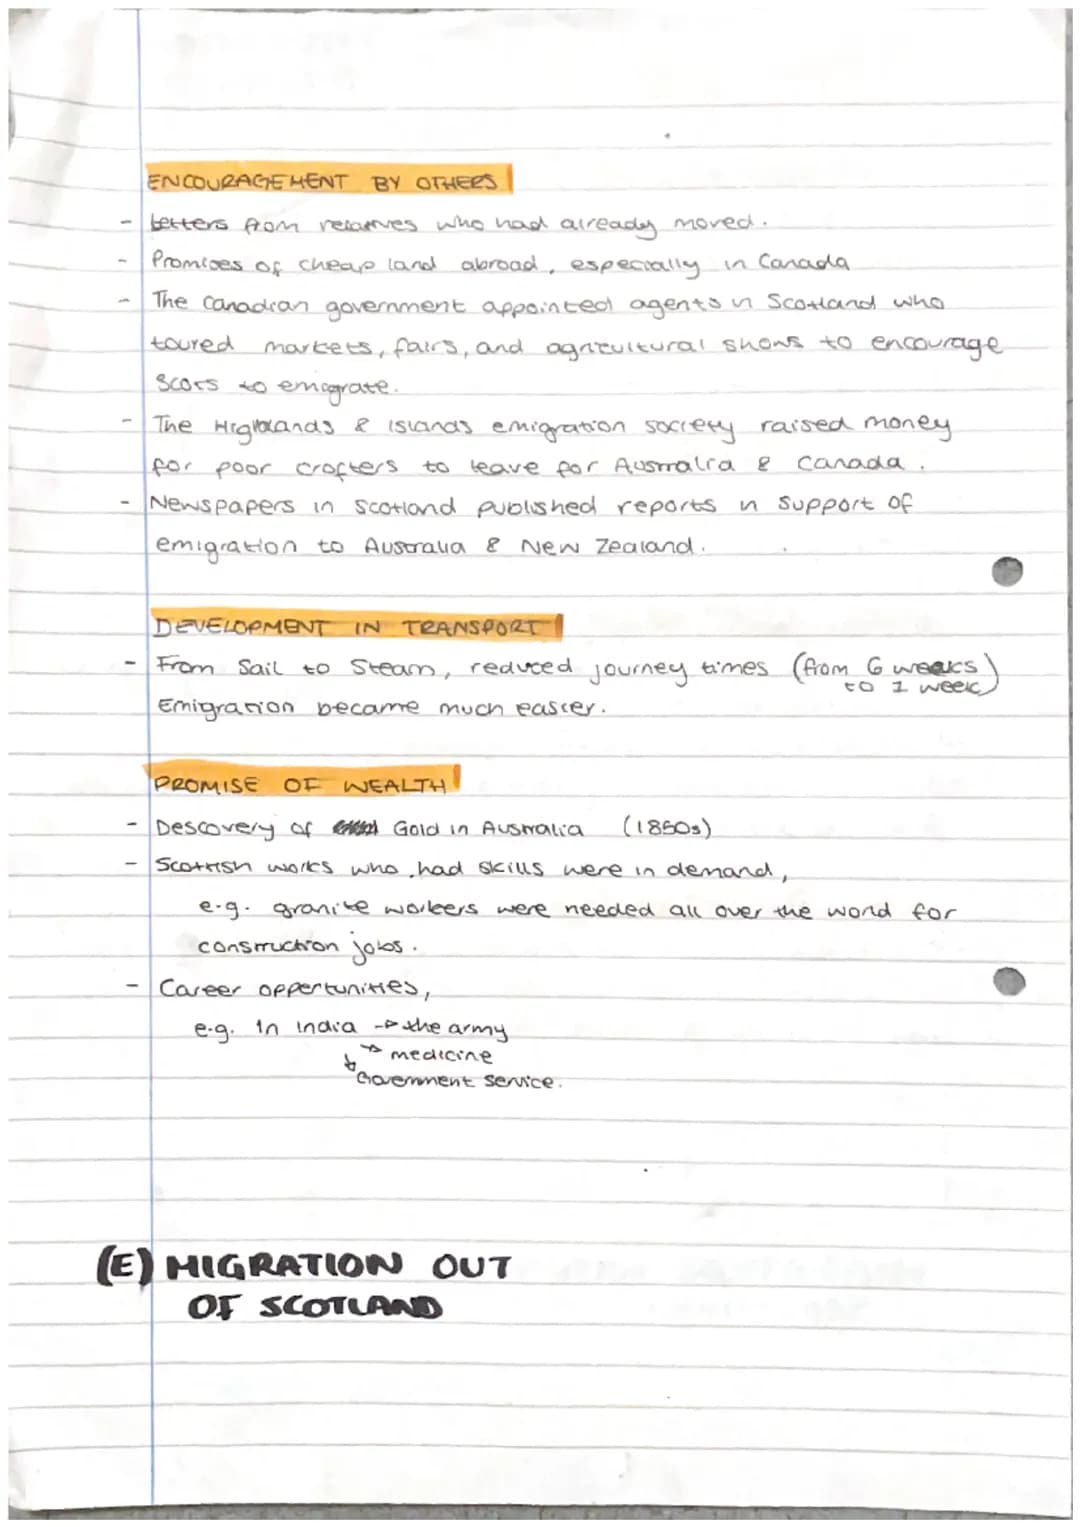 ENCOURAGEMENT BY OTHERS
- Letters from relatives who had already moved.
- Promises of cheap land abroad, especially in Canada
- The Canadian government appointed agents in Scotland who
toured markets, fairs, and agricultural shows to encourage
Scots to emigrate.
- The Highlands & Islands emigration society raised money
for poor crofters to leave for Australia & Canada.
- Newspapers in Scotland published reports in support of
emigration to Australia & New Zealand.
DEVELOPMENT IN TRANSPORT
- From Sail to Steam, reduced journey times (from 6 weeks
to 1 week)
Emigration became much easier.
PROMISE OF WEALTH
- Descovery of Gold in Australia (1850s)
- Scottish works who had skills were in demand,
e.g. granite workers were needed all over the world for
construction jobs.
- Career oppertunities,
e.g. In India → the army
→ medicine
→ Government service.
(E) MIGRATION OUT
OF SCOTLAND